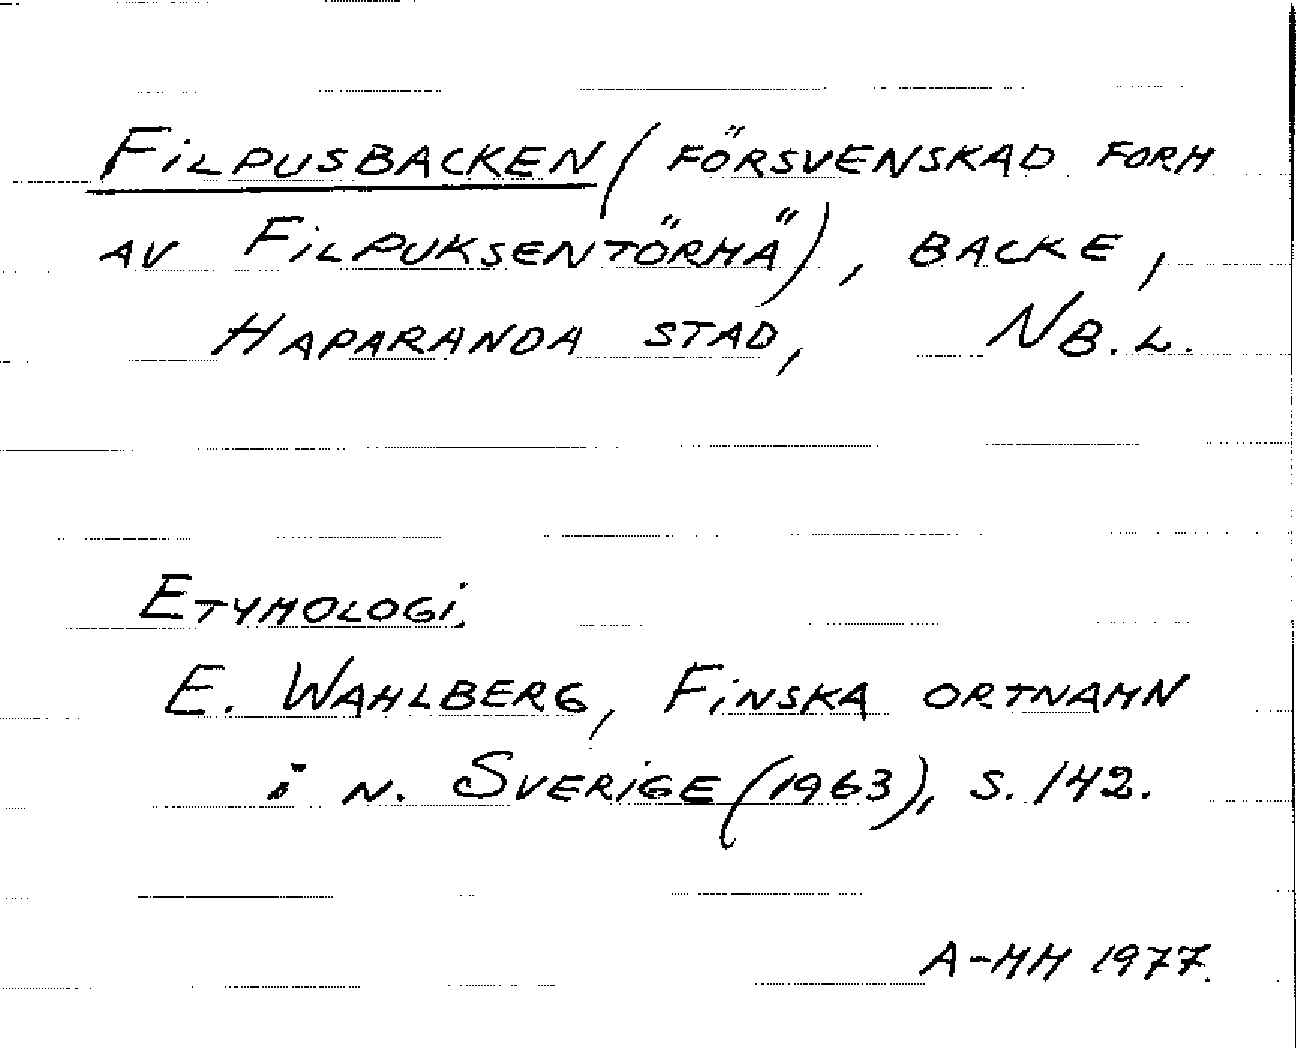 FILPUSBACKEN (FÖRSVENSKAD FORM
AV FILPUKSENTÖRMÄ), BACKE,
HAPARANDA STAD, NB.L.
ETYMOLOGI.
E. WAHLBERG, FINSKA ORTNAMN
i N. SVERIGE (1963), S. 142.
A-MM 1977.